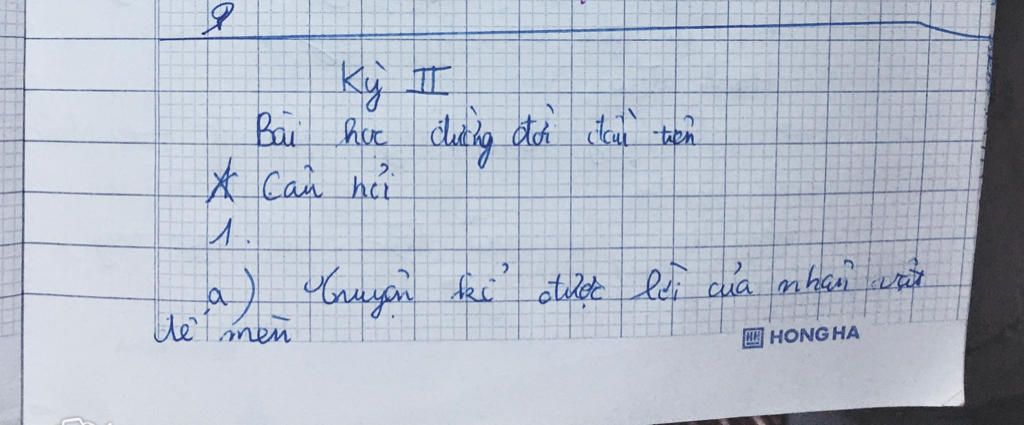 Kỳ II
Bài học đường đời đầu tiên
* Câu hỏi
1.
a) Truyện kể được lời của nhân vật
dế mèn
HONG HA